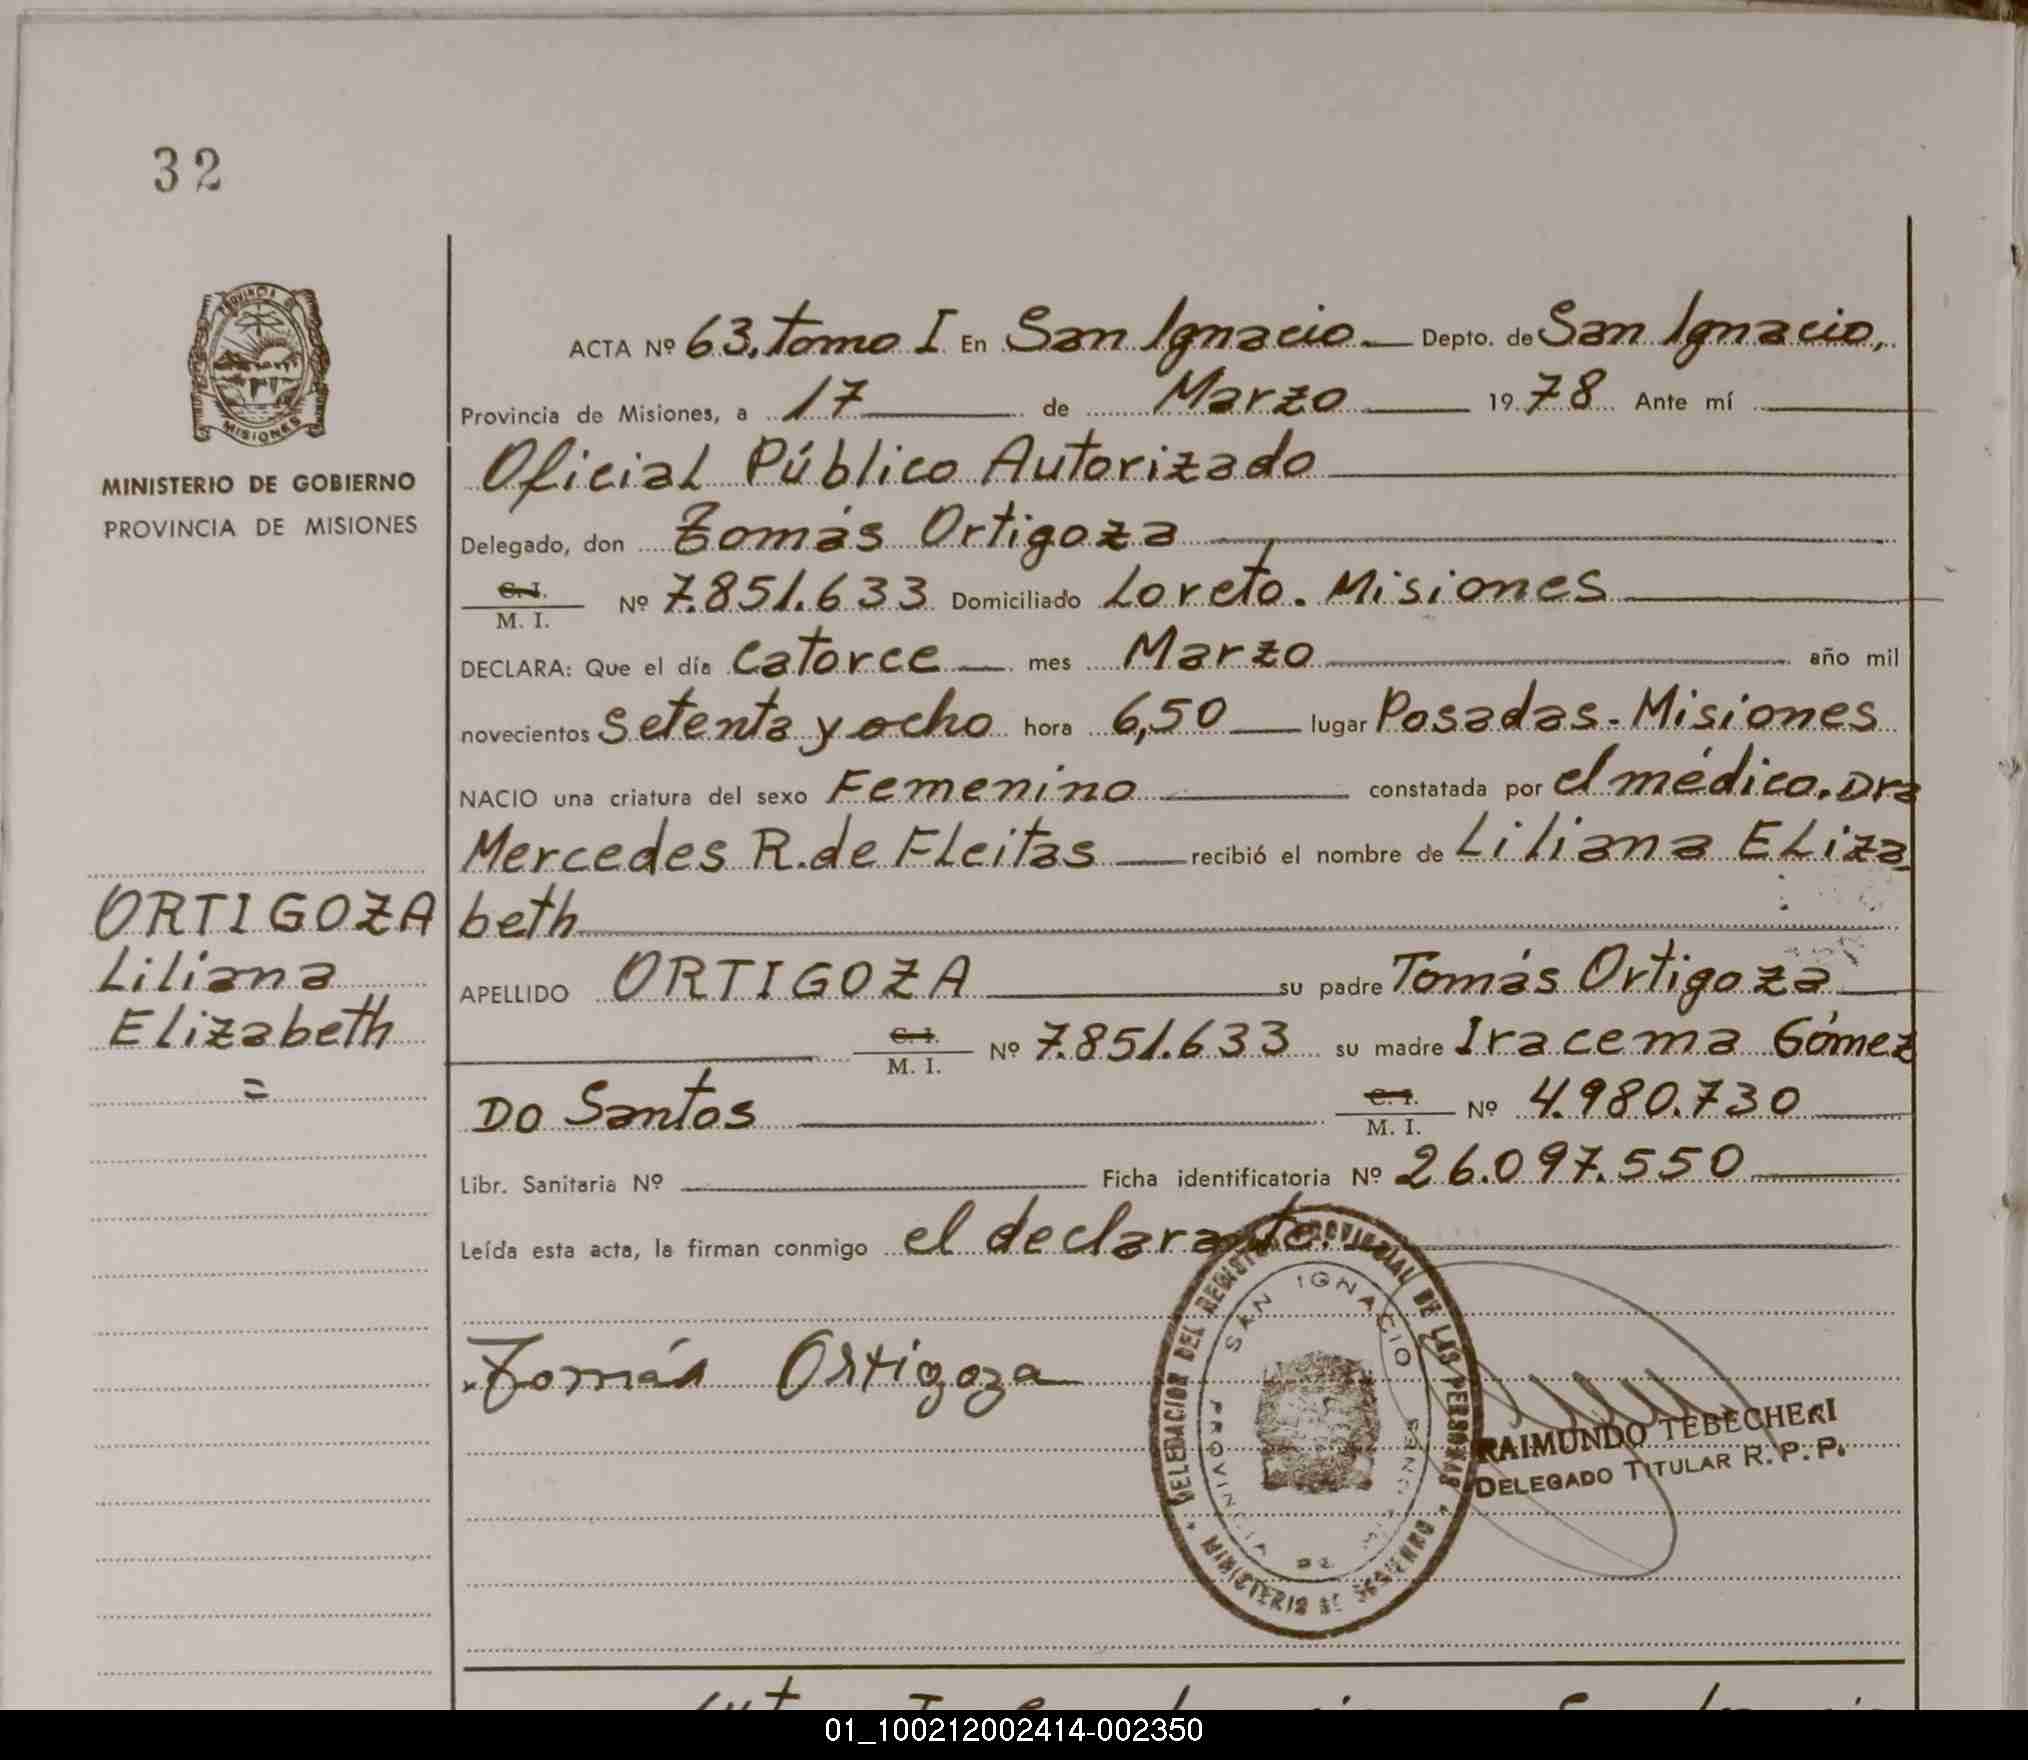 32
PROVINCIA DE
MISIONES
MINISTERIO DE GOBIERNO
PROVINCIA DE MISIONES
ORTIGOZA
Liliana
Elizabeth
=
ACTA Nº 63. tomo I En San Ignacio.— Depto. de San Ignacio,
Provincia de Misiones, a 17 de Marzo 1978 Ante mí
Oficial Público Autorizado
Delegado, don Tomás Ortigoza
C. I.
M. I. Nº 7.851.633 Domiciliado Loreto. Misiones
DECLARA: Que el día catorce — mes Marzo año mil
novecientos setenta y ocho hora 6,50 — lugar Posadas - Misiones
NACIO una criatura del sexo Femenino constatada por el médico. Dra
Mercedes R. de Fleitas — recibió el nombre de Liliana Eliza
beth
APELLIDO ORTIGOZA su padre Tomás Ortigoza
C. I.
M. I. Nº 7.851.633 su madre Iracema Gómez
DO Santos C. I.
M. I. Nº 4.980.730
Libr. Sanitaria Nº Ficha identificatoria Nº 26.097.550
Leída esta acta, la firman conmigo el declarante.
Tomás Ortigoza
DELEGACION DEL REGISTRO PROVINCIAL DE LAS PERSONAS
MINISTERIO DE GOBIERNO
SAN IGNACIO
PROVINCIA DE MISIONES
RAIMUNDO TEBECHERI
DELEGADO TITULAR R. P. P.
01_100212002414-002350